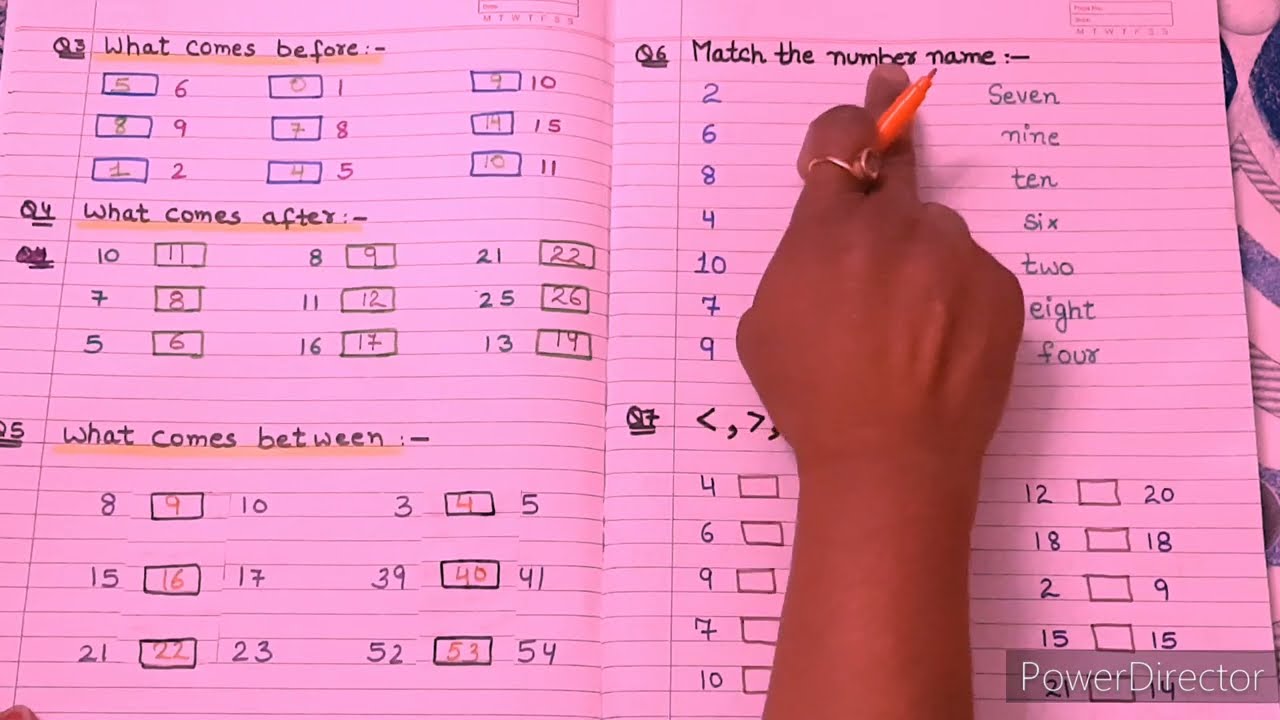 Date:
M T W T F S S
Q3 What comes before:-
5 6 0 1 9 10
8 9 7 8 14 15
1 2 4 5 10 11
Q4 What comes after:-
Q4 10 11 8 9 21 22
7 8 11 12 25 26
5 6 16 17 13 14
Q5 What comes between:-
8 9 10 3 4 5
15 16 17 39 40 41
21 22 23 52 53 54
Page No.
Date:
M T W T F S S
Q6 Match the number name:-
2 Seven
6 nine
8 ten
4 six
10 two
7 eight
9 four
Q7 <, >,
4 12 20
6 18 18
9 2 9
7 15 15
10 21 14
PowerDirector